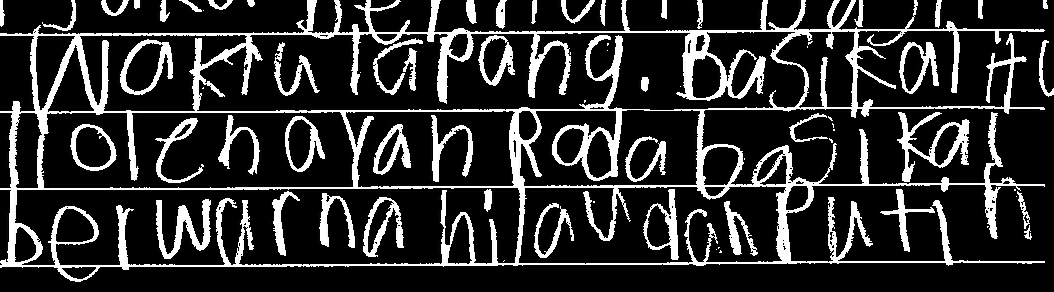 Waktu lapang. Basikal itu
oleh ayah Roda basikal
berwarna hilau dan Putih